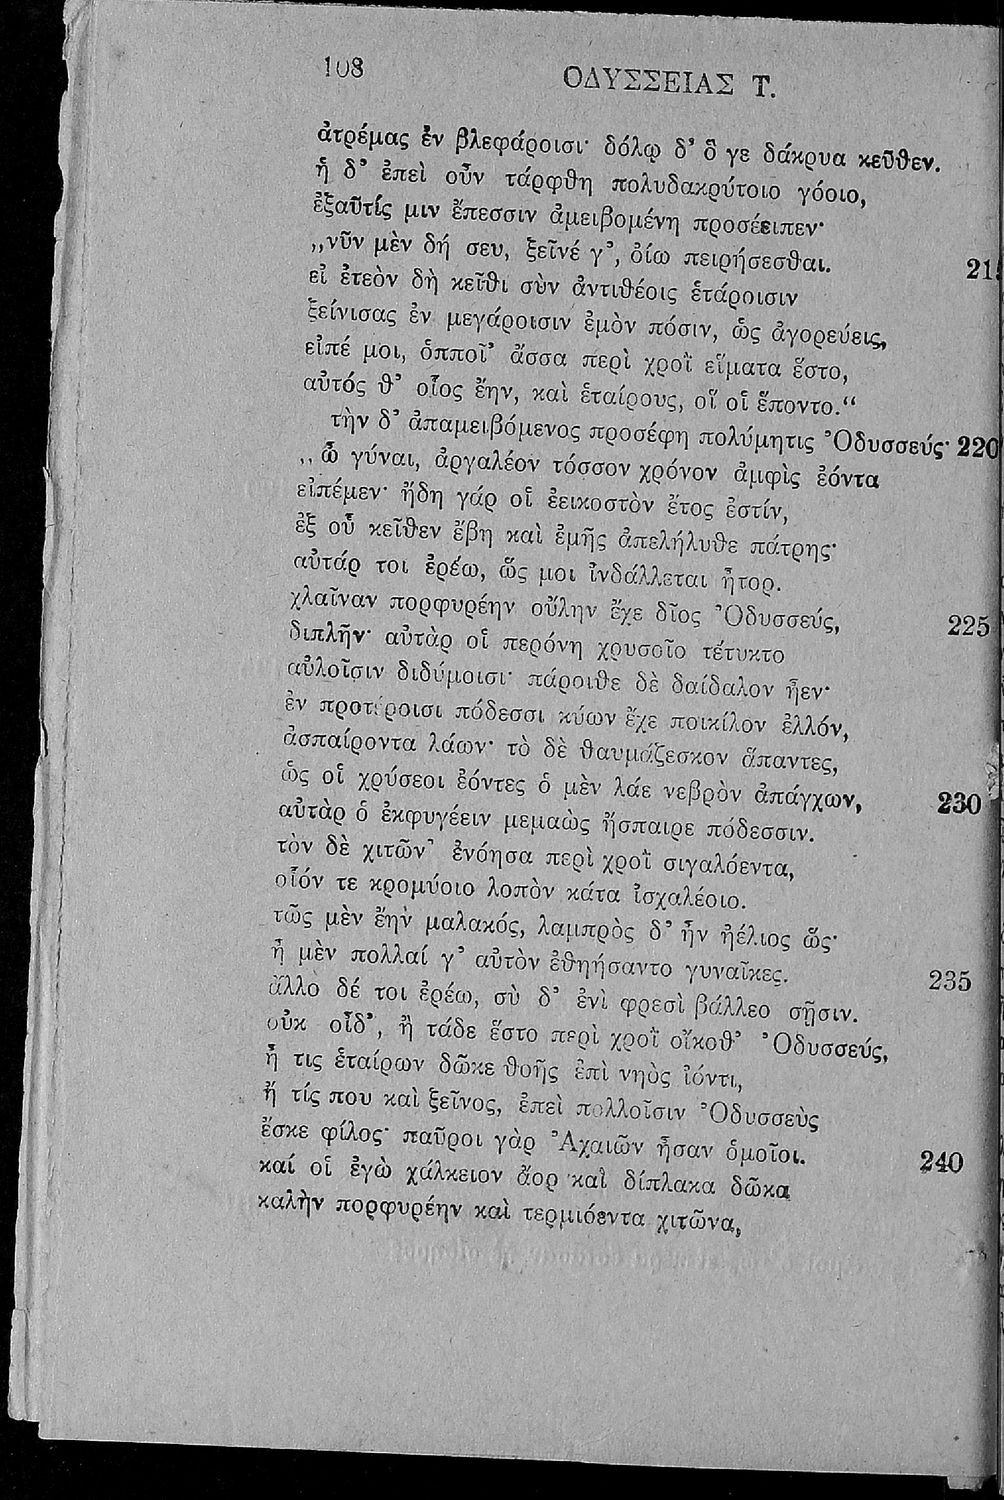 108 ΟΔΥΣΣΕΙΑΣ Τ.
ἀτρέμας ἐν βλεφάροισι· δόλῳ δ' ὅ γε δάκρυα κεῦθεν.
ἡ δ' ἐπεὶ οὖν τάρφθη πολυδακρύτοιο γόοιο,
ἐξαῦτίς μιν ἔπεσσιν ἀμειβομένη προσέειπεν·
„νῦν μὲν δή σευ, ξεῖνέ γ', ὀίω πειρήσεσθαι. 215
εἰ ἐτεὸν δὴ κεῖθι σὺν ἀντιθέοις ἑτάροισιν
ξείνισας ἐν μεγάροισιν ἐμὸν πόσιν, ὡς ἀγορεύεις,
εἰπέ μοι, ὁπποῖ' ἄσσα περὶ χροῒ εἵματα ἕστο,
αὐτός θ' οἷος ἔην, καὶ ἑταίρους, οἵ οἱ ἕποντο.“
τὴν δ' ἀπαμειβόμενος προσέφη πολύμητις Ὀδυσσεύς· 220
„ὦ γύναι, ἀργαλέον τόσσον χρόνον ἀμφὶς ἐόντα
εἰπέμεν· ἤδη γάρ οἱ ἐεικοστὸν ἔτος ἐστίν,
ἐξ οὗ κεῖθεν ἔβη καὶ ἐμῆς ἀπελήλυθε πάτρης·
αὐτάρ τοι ἐρέω, ὥς μοι ἰνδάλλεται ἦτορ.
χλαῖναν πορφυρέην οὔλην ἔχε δῖος Ὀδυσσεύς, 225
διπλῆν· αὐτὰρ οἱ περόνη χρυσοῖο τέτυκτο
αὐλοῖσιν διδύμοισι· πάροιθε δὲ δαίδαλον ἦεν·
ἐν προτέροισι πόδεσσι κύων ἔχε ποικίλον ἐλλόν,
ἀσπαίροντα λάων· τὸ δὲ θαυμάζεσκον ἅπαντες,
ὡς οἱ χρύσεοι ἐόντες ὁ μὲν λάε νεβρὸν ἀπάγχων, 230
αὐτὰρ ὁ ἐκφυγέειν μεμαὼς ἤσπαιρε πόδεσσιν.
τὸν δὲ χιτῶν' ἐνόησα περὶ χροῒ σιγαλόεντα,
οἷόν τε κρομύοιο λοπὸν κάτα ἰσχαλέοιο.
τὼς μὲν ἔην μαλακός, λαμπρὸς δ' ἦν ἠέλιος ὥς·
ἦ μὲν πολλαί γ' αὐτὸν ἐθηήσαντο γυναῖκες. 235
ἄλλο δέ τοι ἐρέω, σὺ δ' ἐνὶ φρεσὶ βάλλεο σῇσιν.
οὐκ οἶδ', ἢ τάδε ἕστο περὶ χροῒ οἴκοθ' Ὀδυσσεύς,
ἦ τις ἑταίρων δῶκε θοῆς ἐπὶ νηὸς ἰόντι,
ἤ τίς που καὶ ξεῖνος, ἐπεὶ πολλοῖσιν Ὀδυσσεὺς
ἔσκε φίλος· παῦροι γὰρ Ἀχαιῶν ἦσαν ὁμοῖοι. 240
καί οἱ ἐγὼ χάλκειον ἄορ καὶ δίπλακα δῶκα
καλὴν πορφυρέην καὶ τερμιόεντα χιτῶνα,